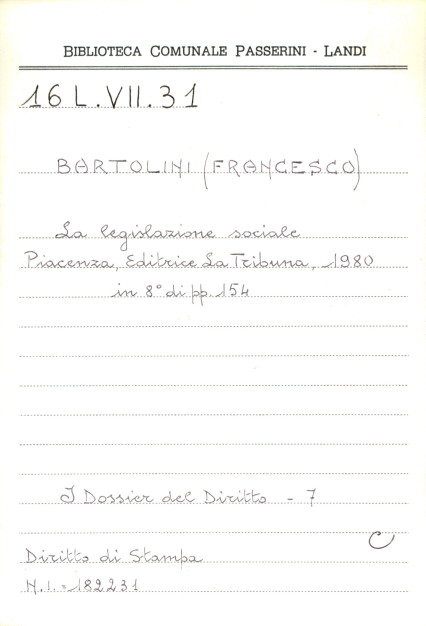 BIBLIOTECA COMUNALE PASSERINI - LANDI
16 L.VII.31
BARTOLINI (FRANCESCO)
La legislazione sociale
Piacenza, Editrice La Tribuna, 1980
in 8° di pp. 154
I Dossier del Diritto - 7
C
Diritto di Stampa
N.I. = 182231